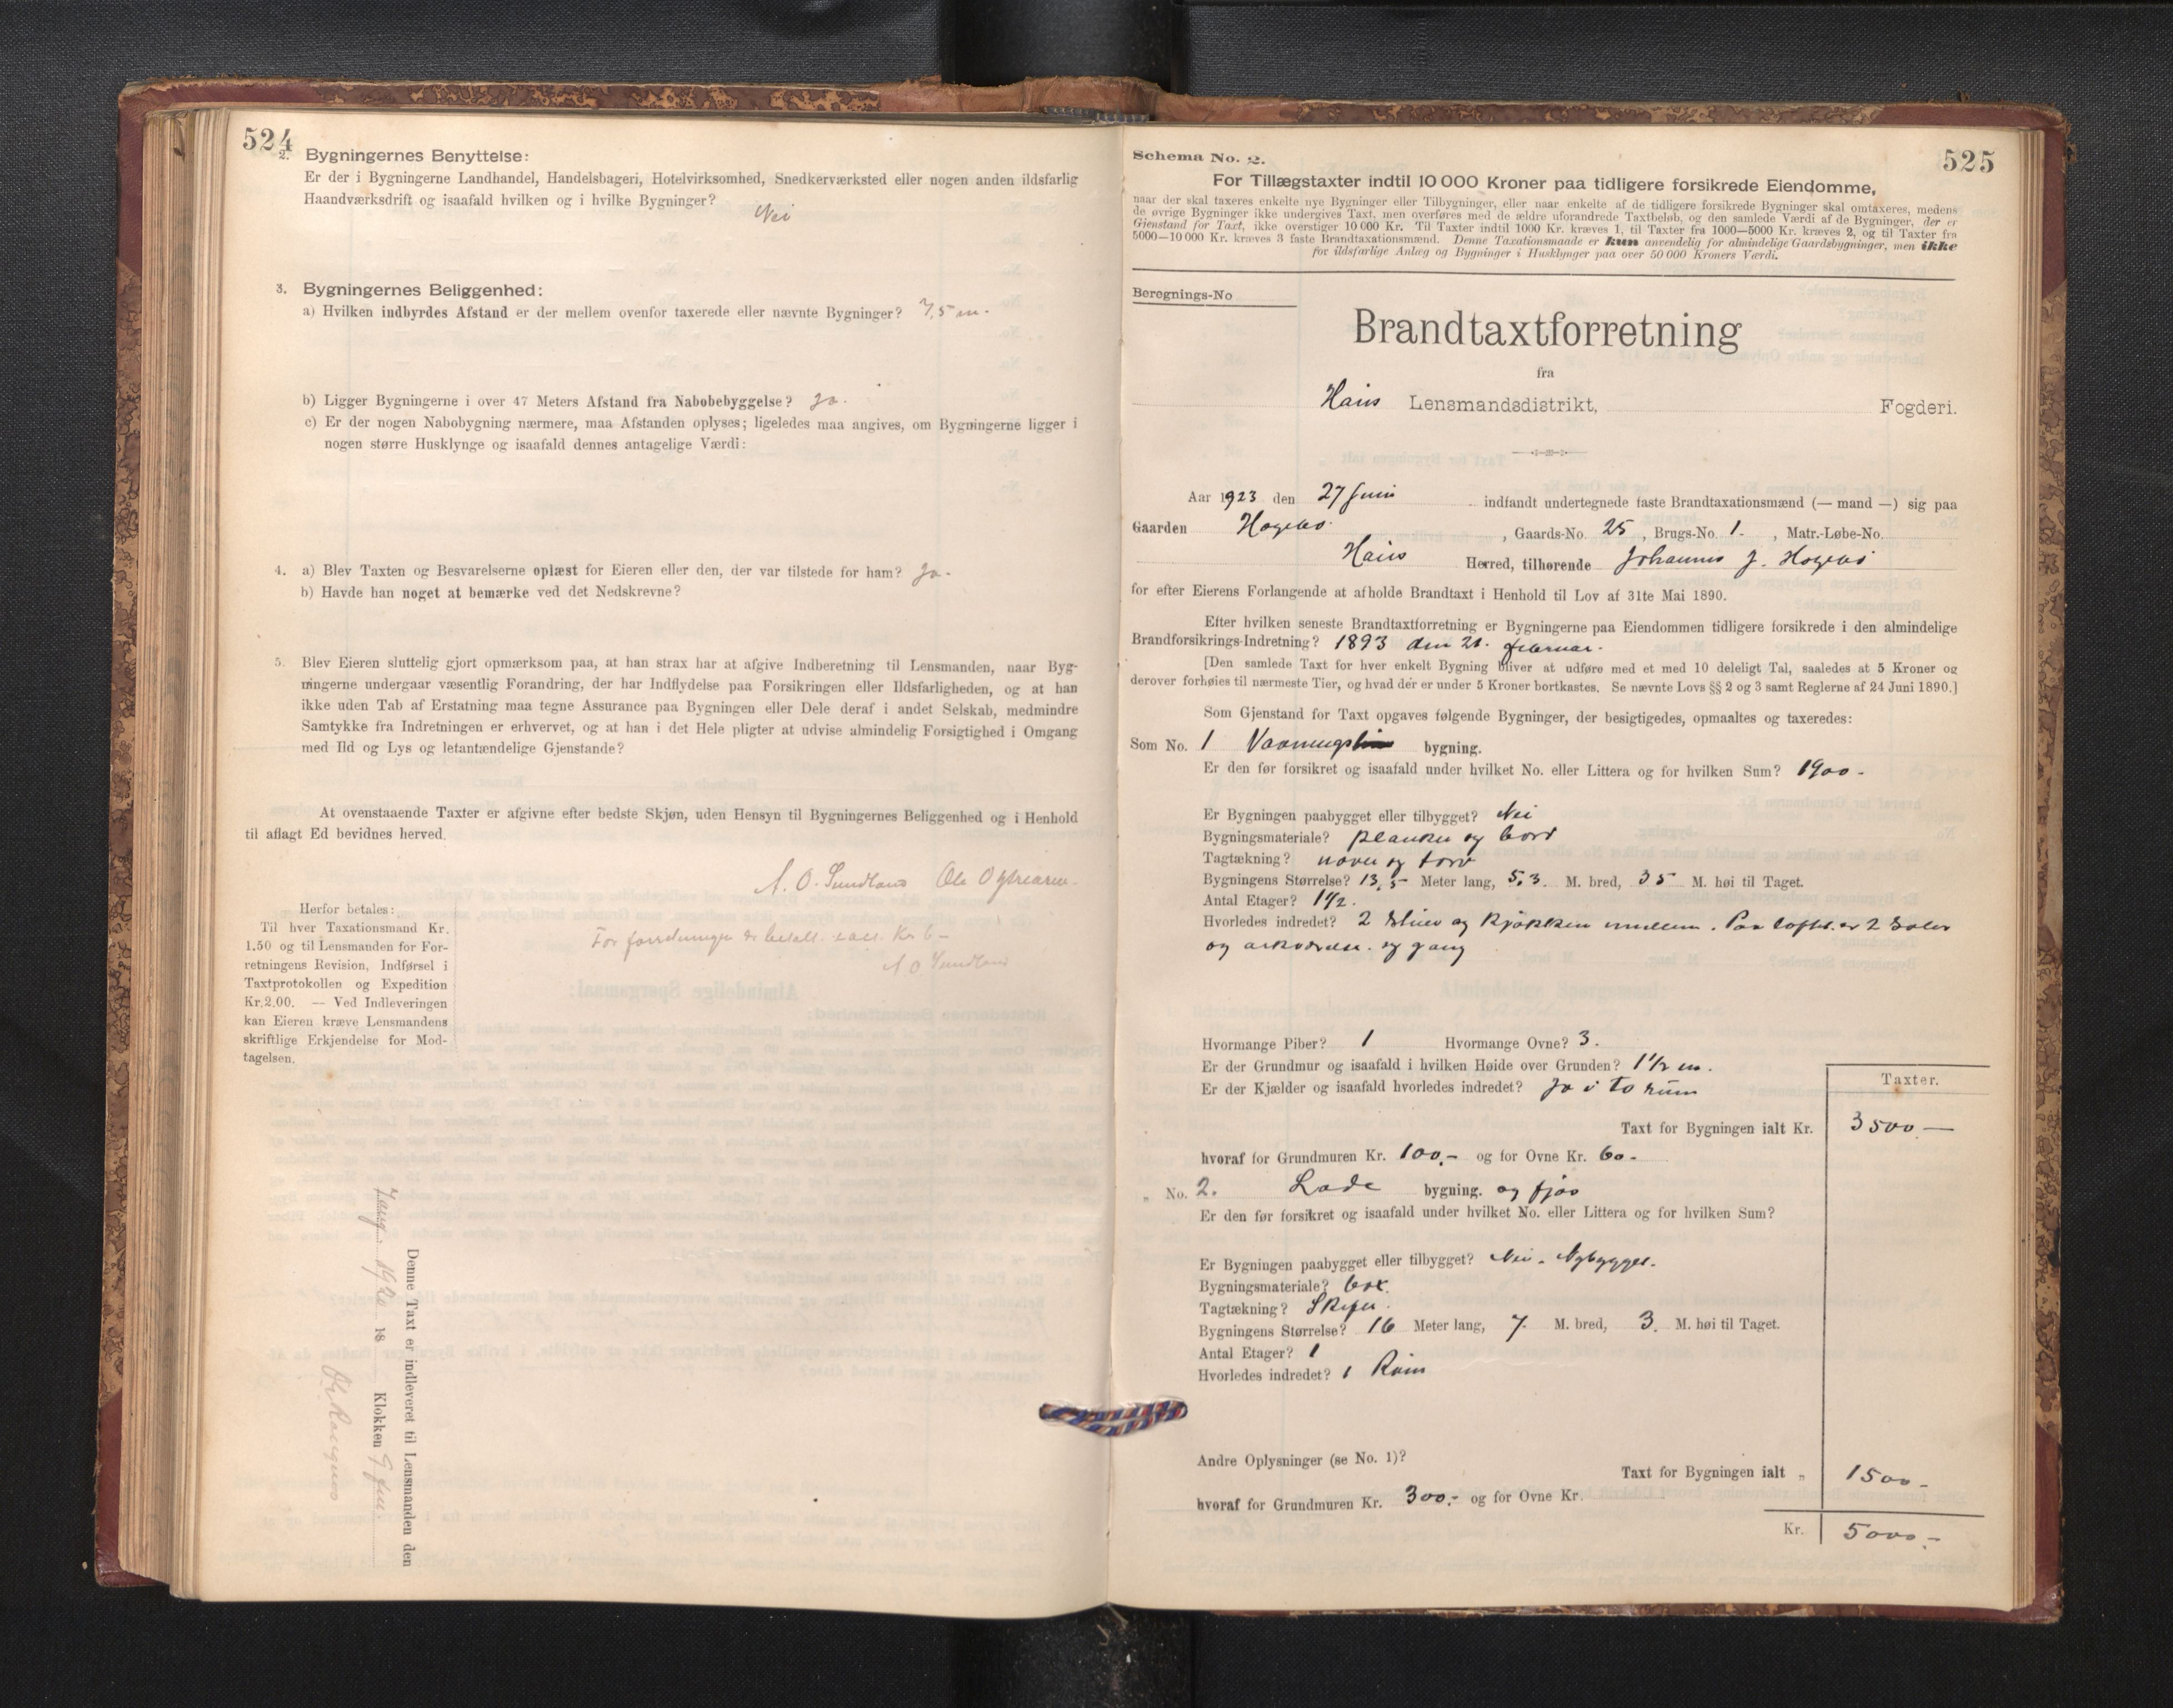 524
2. Bygningernes Benyttelse:
Er der i Bygningerne Landhandel, Handelsbageri, Hotelvirksomhed, Snedkerværksted eller nogen anden ildsfarlig
Haandværksdrift og isaafald hvilken og i hvilke Bygninger?
Nei
3. Bygningernes Beliggenhed:
a) Hvilken indbyrdes Afstand er der mellem ovenfor taxerede eller nævnte Bygninger? 7,5 m.
b) Ligger Bygningerne i over 47 Meters Afstand fra Nabobebyggelse? Ja.
c) Er der nogen Nabobygning nærmere, maa Afstanden oplyses; ligeledes maa angives, om Bygningerne ligger i
nogen større Husklynge og isaafald dennes antagelige Værdi:
4. a) Blev Taxten og Besvarelserne oplæst for Eieren eller den, der var tilstede for ham? Ja.
b) Havde han noget at bemærke ved det Nedskrevne?
5. Blev Eieren sluttelig gjort opmærksom paa, at han strax har at afgive Indberetning til Lensmanden, naar Byg-
ningerne undergaar væsentlig Forandring, der har Indflydelse paa Forsikringen eller Ildsfarligheden, og at han
ikke uden Tab af Erstatning maa tegne Assurance paa Bygningen eller Dele deraf i andet Selskab, medmindre
Samtykke fra Indretningen er erhvervet, og at han i det Hele pligter at udvise almindelig Forsigtighed i Omgang
med Ild og Lys og letantændelige Gjenstande?
At ovenstaaende Taxter er afgivne efter bedste Skjøn, uden Hensyn til Bygningernes Beliggenhed og i Henhold
til aflagt Ed bevidnes herved.
A. O. Sundland Ole
Herfor betales:
Til hver Taxationsmand Kr.
1.50 og til Lensmanden for For-
retningens Revision, Indførsel i
Taxtprotokollen og Expedition
Kr. 2.00. — Ved Indleveringen
kan Eieren kræve Lensmandens
skriftlige Erkjendelse for Mod-
tagelsen.
For forretningen er betalt Kr 6 –
A O Sundland
Denne Taxt er indleveret til Lensmanden den
18 Klokken
525
Schema No. 2.
For Tillægstaxter indtil 10 000 Kroner paa tidligere forsikrede Eiendomme,
naar der skal taxeres enkelte nye Bygninger eller Tilbygninger, eller naar enkelte af de tidligere forsikrede Bygninger skal omtaxeres, medens
de øvrige Bygninger ikke undergives Taxt, men overføres med de ældre uforandrede Taxtbeløb, og den samlede Værdi af de Bygninger, der er
Gjenstand for Taxt, ikke overstiger 10 000 Kr. Til Taxter indtil 1000 Kr. kræves 1, til Taxter fra 1000—5000 Kr. kræves 2, og til Taxter fra
5000—10 000 Kr. kræves 3 faste Brandtaxationsmænd. Denne Taxationsmaade er kun anvendelig for almindelige Gaardsbygninger, men ikke
for ildsfarlige Anlæg og Bygninger i Husklynger paa over 50 000 Kroners Værdi.
Beregnings-No
Brandtaxtforretning
fra
Haus Lensmandsdistrikt, Fogderi.
Aar 1923 den 27 Juni indfandt undertegnede faste Brandtaxationsmænd (— mand —) sig paa
Gaarden Hogebø, Gaards-No. 25, Brugs-No. 1., Matr.-Løbe-No.
Haus Herred, tilhørende Johannes J. Hogebø
for efter Eierens Forlangende at afholde Brandtaxt i Henhold til Lov af 31te Mai 1890.
Efter hvilken seneste Brandtaxtforretning er Bygningerne paa Eiendommen tidligere forsikrede i den almindelige
Brandforsikrings-Indretning? 1893 den 21. februar.
[Den samlede Taxt for hver enkelt Bygning bliver at udføre med et med 10 deleligt Tal, saaledes at 5 Kroner og
derover forhøies til nærmeste Tier, og hvad der er under 5 Kroner bortkastes. Se nævnte Lovs §§ 2 og 3 samt Reglerne af 24 Juni 1890.]
Som Gjenstand for Taxt opgaves følgende Bygninger, der besigtigedes, opmaaltes og taxeredes:
Som No. 1 Vaanings bygning.
Er den før forsikret og isaafald under hvilket No. eller Littera og for hvilken Sum? 1900.
Er Bygningen paabygget eller tilbygget? Nei
Bygningsmateriale? planker og bord
Tagtækning? næver og torv
Bygningens Størrelse? 13,5 Meter lang, 5,3. M. bred, 3 5 M. høi til Taget.
Antal Etager? 1½.
Hvorledes indredet? 2 stuer og kjøkken imellem. Paa loftet er 2 Saler
og arkværelse. og gang
Hvormange Piber? 1 Hvormange Ovne? 3.
Er der Grundmur og isaafald i hvilken Høide over Grunden? 1½ m.
Er der Kjælder og isaafald hvorledes indredet? Ja i to rum
Taxter.
Taxt for Bygningen ialt Kr. 3500.—
hvoraf for Grundmuren Kr. 100.- og for Ovne Kr. 60.
„ No. 2. Lade bygning. og fjøs
Er den før forsikret og isaafald under hvilket No. eller Littera og for hvilken Sum?
Er Bygningen paabygget eller tilbygget? Nei. Nybygget.
Bygningsmateriale? bor.
Tagtækning? Skifer.
Bygningens Størrelse? 16 Meter lang, 7. M. bred, 3. M. høi til Taget.
Antal Etager? 1
Hvorledes indredet? 1 Rum
Andre Oplysninger (se No. 1)?
Taxt for Bygningen ialt „ 1500.-
hvoraf for Grundmuren Kr. 300.- og for Ovne Kr.
Kr. 5000.-